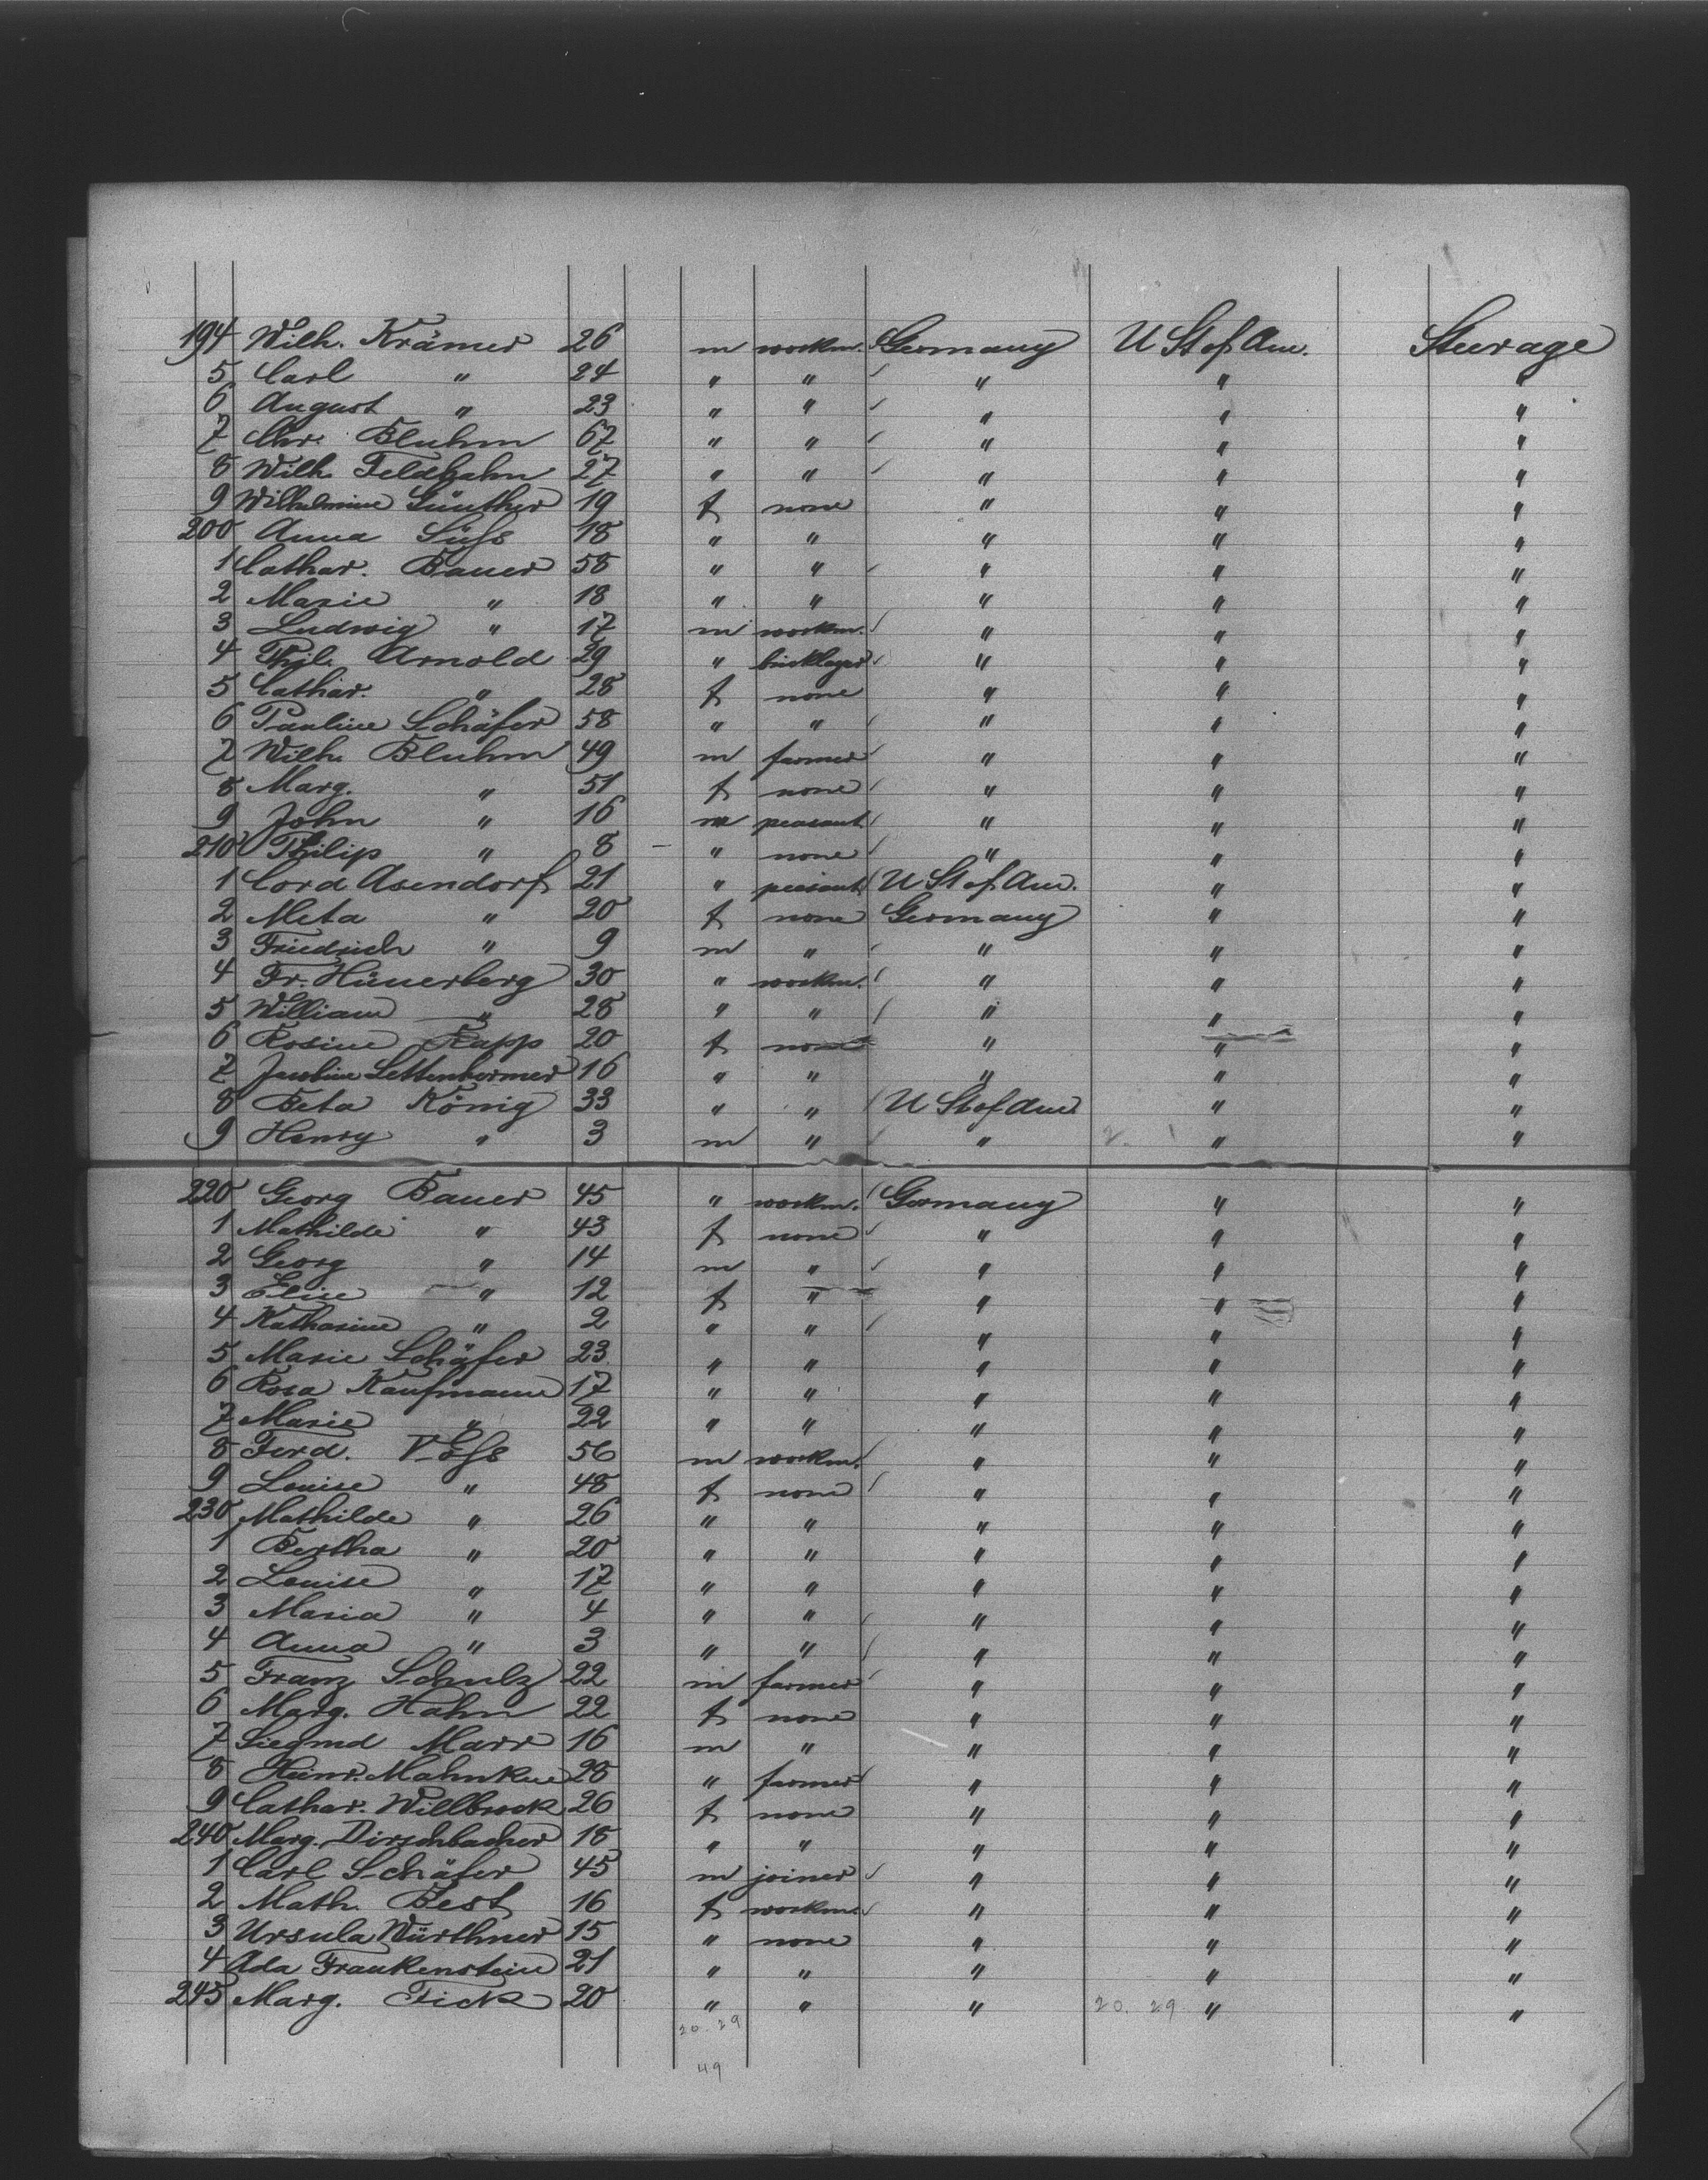 194 Wilh. Krämer 26 m workm. Germany U St of Am. Steerage
5 Carl " 24 " " " " "
6 August " 23 " " " " "
7 Chr. Bluhm 67 " " " " "
8 Wilh. Feldhahn 27 " " " " "
9 Wilhelmine Günther 19 f none " " "
200 Anna Süß 18 " " " " "
1 Cathar. Bauer 58 " " " " "
2 Marie " 18 " " " " "
3 Ludwig " 17 m workm. " " "
4 Phil. Arnold 29 " bricklayer " " "
5 Cathar. " 28 f none " " "
6 Pauline Schäfer 58 " " " " "
7 Wilh. Bluhm 49 m farmer " " "
8 Marg. " 51 f none " " "
9 John " 16 m peasant " " "
210 Philip " 8 — " none " " "
1 Cord Asendorf 21 " peasant U St of Am. " "
2 Meta " 20 f none Germany " "
3 Friedrich " 9 m " " " "
4 Fr. Hünerberg 30 " workm. " " "
5 William " 28 " " " " "
6 Rosine Rapp 20 f none " " "
7 16 " " " " "
8 Beta König 33 " " U St of Am. " "
9 Henry " 3 m " " " "
220 Georg Bauer 45 " workm. Germany " "
1 Mathilde " 43 f none " " "
2 Georg " 14 m " " " "
3 Elise " 12 f " " " "
4 Katharine " 2 " " " " "
5 Marie Schäfer 23 " " " " "
6 Rosa Kaufmann 17 " " " " "
7 Marie " 22 " " " " "
8 Ferd. Voß 56 m workm. " " "
9 Louise " 48 f none " " "
230 Mathilde " 26 " " " " "
1 Bertha " 20 " " " " "
2 Louise " 17 " " " " "
3 Maria " 4 " " " " "
4 Anna " 3 " " " " "
5 Franz Schulz 22 m farmer " " "
6 Marg. Hahn 22 f none " " "
7 Siegmd Marr 16 m " " " "
8 Heinr. Mahnken 28 " farmer " " "
9 Cathar. Willbrock 26 f none " " "
240 Marg. Dirschbacher 18 " " " " "
1 Carl Schäfer 45 m joiner " " "
2 Math. Best 16 f workm. " " "
3 Ursula Würthner 15 " none " " "
4 Ada Frankenstein 21 " " " " "
245 Marg. Fick 20 " " " 20. 29 " "
20. 29
49